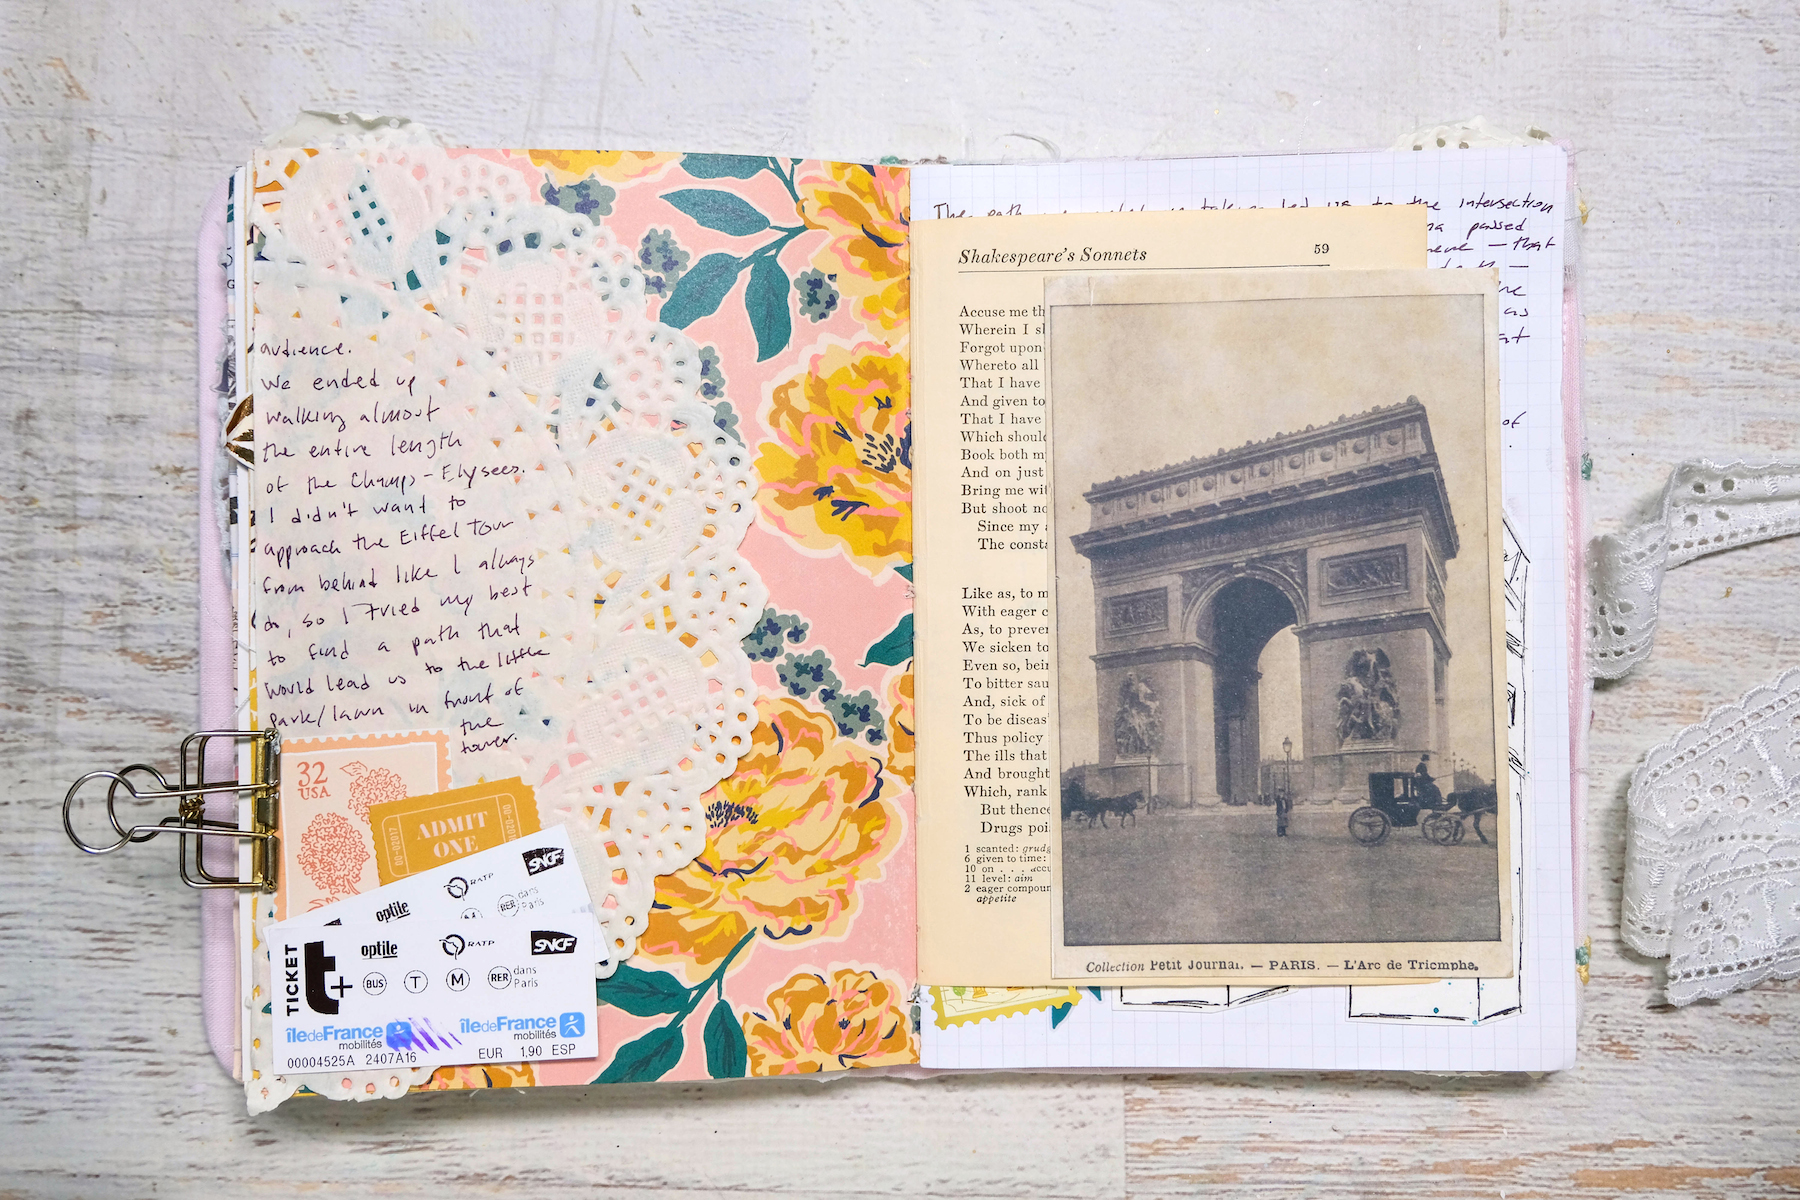 audience.
We ended up
walking almost
the entire length
of the Champs-Elysees.
I didn't want to
approach the Eiffel Tour
from behind like I always
do, so I tried my best
to find a path that
would lead us to the little
park/lawn in front of
the
tower.
32
USA
ADMIT
ONE
00-02017
00-02017
SNCF
RATP
optile
RER dans
Paris
TICKET
t+
optile
RATP
SNCF
BUS
T
M
RER dans
Paris
îledeFrance
mobilités
îledeFrance
mobilités
00004525A 2407A16
EUR 1,90 ESP
The path
led us to the intersection
passed
— that
of
Shakespeare's Sonnets
59
Accuse me th
Wherein I sh
Forgot upon
Whereto all
That I have
And given to
That I have
Which should
Book both my
And on just
Bring me wit
But shoot no
Since my a
The consta
Like as, to m
With eager c
As, to preven
We sicken to
Even so, bein
To bitter sau
And, sick of
To be diseas'
Thus policy
The ills that
And brought
Which, rank
But thence
Drugs pois
1 scanted: grudg
6 given to time:
10 on . . . accu
11 level: aim
2 eager compoun
appetite
Collection Petit Journal. — PARIS. — L'Arc de Triomphe.